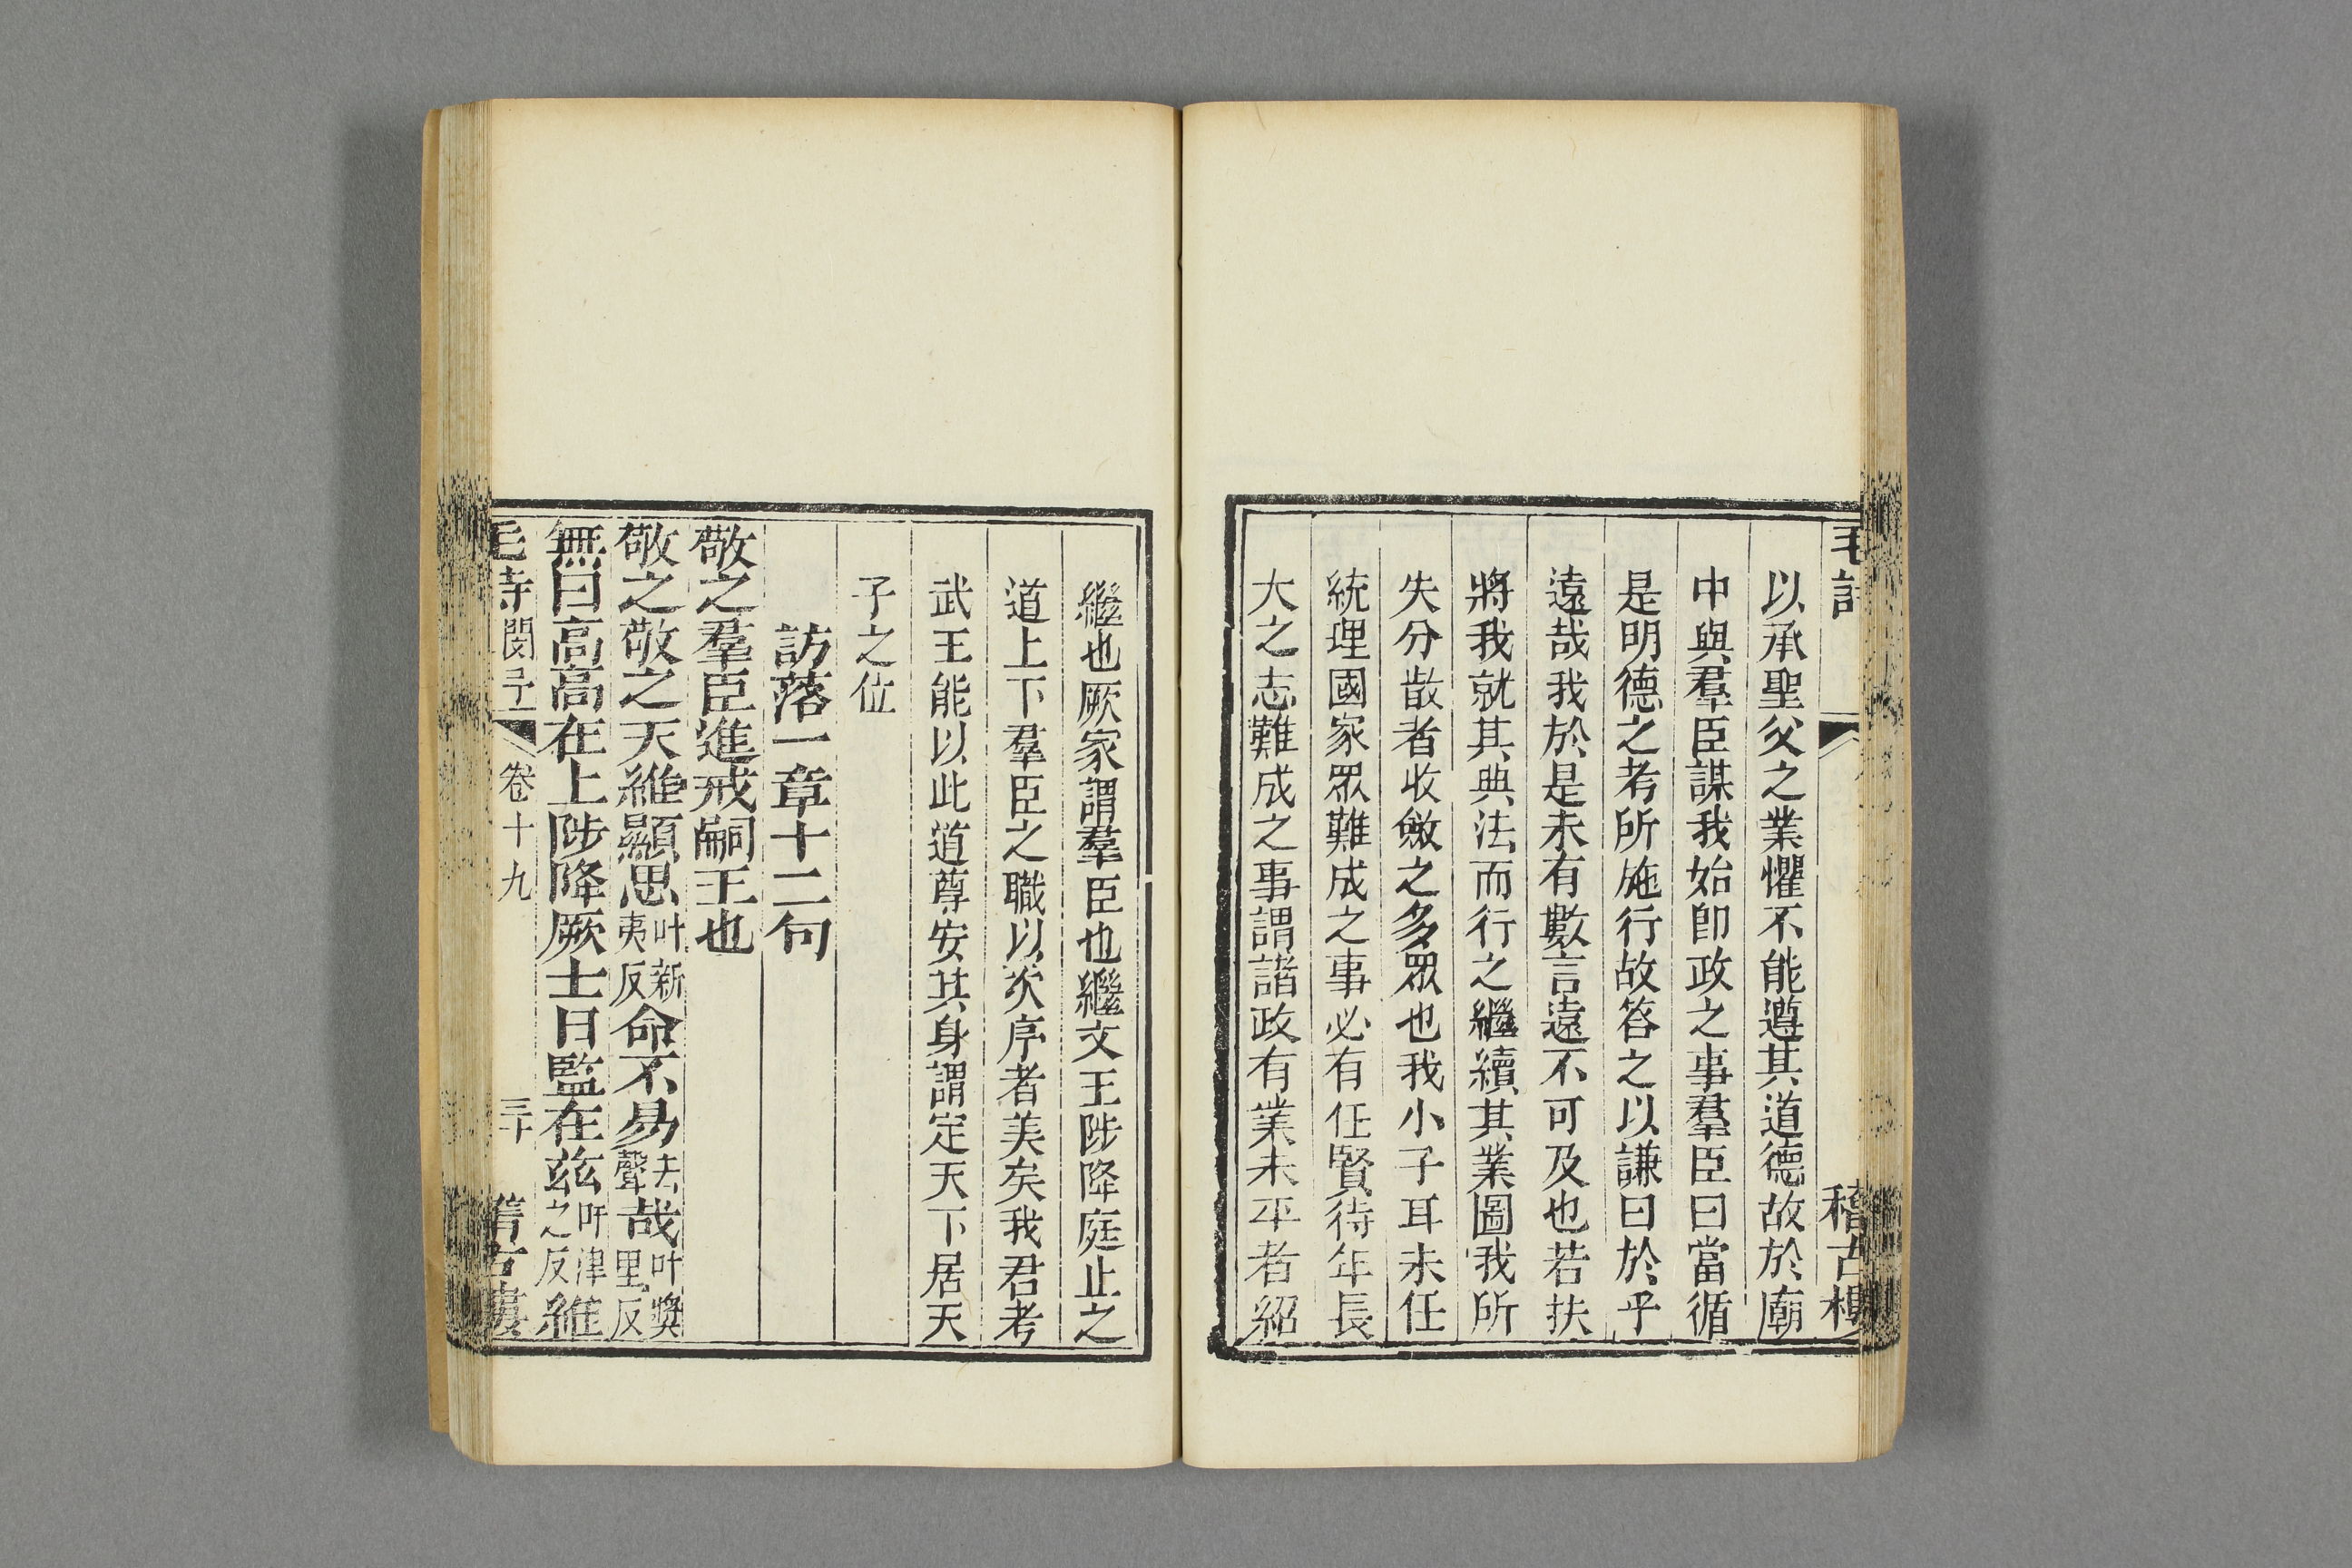 毛詩
稽古樓
以承聖父之業懼不能遵其道德故於廟
中與羣臣謀我始卽政之事羣臣曰當循
是明德之考所施行故答之以謙曰於乎
遠哉我於是未有數言遠不可及也若扶
將我就其典法而行之繼續其業圖我所
失分㪚者收斂之多眾也我小子耳未任
統理國家眾難成之事必有任賢待年長
大之志難成之事謂諸政有業未平者紹
繼也厥家謂羣臣也繼文王陟降庭止之
道上下羣臣之職以次序者美矣我君考
武王能以此道尊安其身謂定天下居天
子之位
訪落一章十二句
敬之羣臣進戒嗣王也
敬之敬之天維顯思叶新夷反命不易去聲哉叶獎里反
無曰高高在上陟降厥士日監在茲叶津之反維
毛詩閔予 卷十九 三十 稽古樓